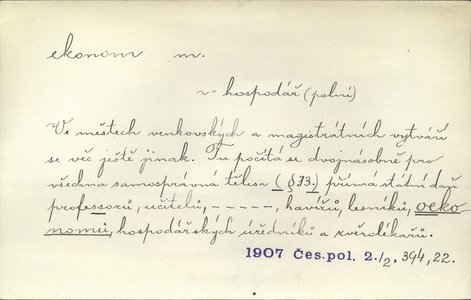 ekonom m.
v= hospodář (polní)
Ve městech venkovských a magistrátních vytváří
se věc ještě jinak. Tu počítá se dvojnásobně pro
všechna samosprávná tělesa (§ 73.) přímá státní daň
professorů, učitelů, - - - - -, havířů, lesníků, oeko
nomů, hospodářských úředníků a zvěrolékařů.
1907 Čes. pol. 2./2, 394, 22.